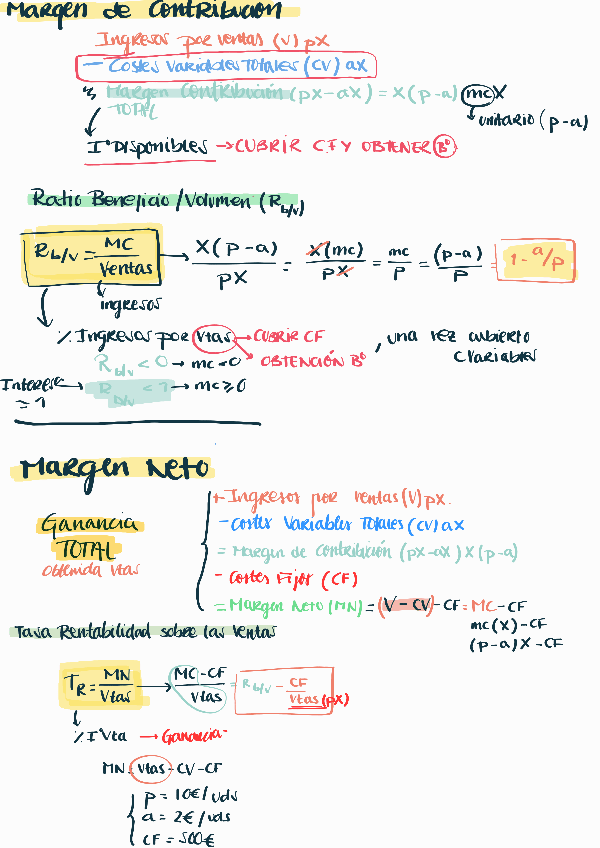 Margen de Contribución
Ingresos por ventas (V) pX
- Costes Variables Totales (CV) aX
Margen Contribución (pX-aX) = X(p-a) mcX
TOTAL
unitario (p-a)
Iº Disponibles → CUBRIR CF Y OBTENER Bº
Ratio Beneficio / Volumen (Rb/v)
Rb/v = MC / Ventas → X(p-a) / pX = X(mc) / pX = mc / p = (p-a) / p = 1 - a/p
ingresos
% Ingresos por vtas → CUBRIR CF
→ OBTENCIÓN Bº , una vez cubierto CVariables
Rb/v < 0 → mc < 0
Rb/v < 1 → mc ≥ 0
≃ 1
Margen Neto
+ Ingresos por ventas (V) pX.
- Costes Variables Totales (CV) aX
Ganancia
TOTAL
obtenida vtas
= Margen de Contribución (pX-aX) X(p-a)
- Costes Fijos (CF)
= Margen Neto (MN) = (V - CV) - CF = MC - CF
mc(X) - CF
(p-a)X - CF
Tasa Rentabilidad sobre las ventas
TR = MN / Vtas → MC - CF / Vtas = Rb/v - CF / Vtas (pX)
% Iº Vta → Ganancia
MN = Vtas - CV - CF
p = 10€/uds
a = 2€/uds
CF = 500€